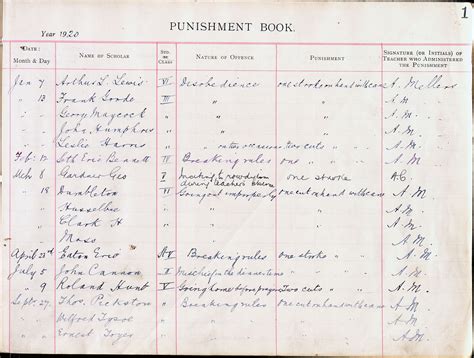 1
PUNISHMENT BOOK.
Year 1920
DATE: Month & Day NAME OF SCHOLAR STD. OR CLASS NATURE OF OFFENCE PUNISHMENT SIGNATURE (OR INITIALS) OF TEACHER WHO ADMINISTERED THE PUNISHMENT
Jan 7 Arthur L. Lewis VI Disobedience one stroke on hand with cane A. Mellors
" 13 Frank Goode III " " A M
" George Maycock " " " A. M
" John Humphries " " " A. M
" Leslie Harris " " two cuts " A. M
Feb. 12 Eric Bennett VI Breaking rules one " A. M
Gardner Geo I one stroke A.C.
" 18 Dumbleton VI one cut on hand with cane A M.
" " " A. M.
Clark H " " A M.
Moss " " A. M.
April 23rd Eaton Eric Breaking rules one stroke " A. M.
July 5 John Cannon V Mischief in the dinner time " A. M.
" 9 Roland Hunt V Going home Two cuts " A. M.
Sept. 27. Thos. Pickstow " Breaking rules one cut on hand with cane A. M
" Wilfred " " " A. M.
" Ernest " " " A. M.